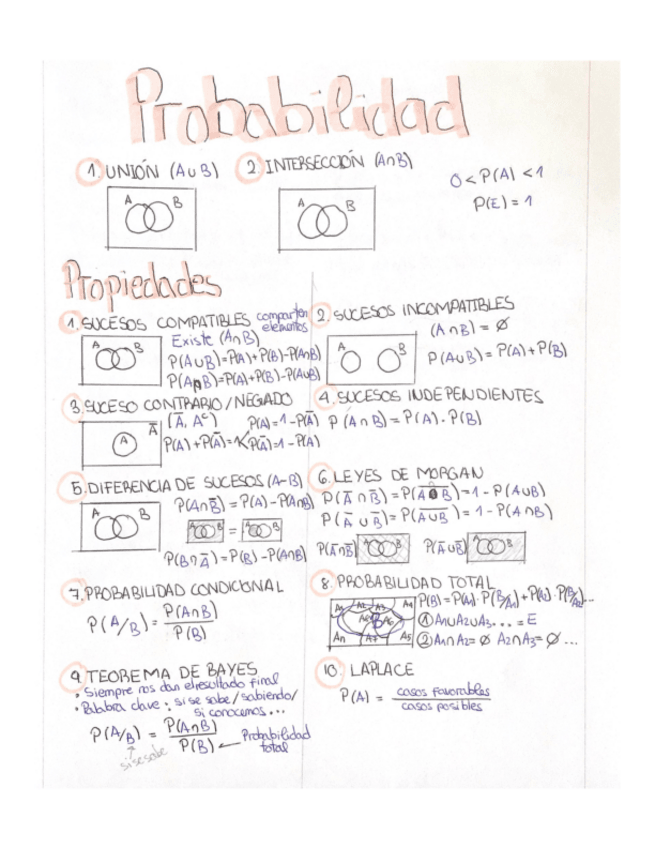 Probabilidad
1. UNIÓN (A∪B)
2. INTERSECCIÓN (A∩B)
0 < P(A) < 1
P(E) = 1
A B
A B
Propiedades
1. SUCESOS COMPATIBLES comparten elementos
Existe (A∩B)
A B
P(A∪B)=P(A)+P(B)-P(A∩B)
P(A∩B)=P(A)+P(B)-P(A∪B)
2. SUCESOS INCOMPATIBLES
(A∩B) = ∅
A B
P(A∪B) = P(A)+P(B)
3. SUCESO CONTRARIO/NEGADO
A Ā
(Ā, Aᶜ) P(A)=1-P(Ā)
P(A)+P(Ā)=1 P(Ā)=1-P(A)
4. SUCESOS INDEPENDIENTES
P(A∩B) = P(A)·P(B)
5. DIFERENCIA DE SUCESOS (A-B)
A B
P(A∩B̅) = P(A)-P(A∩B)
A B = A B
P(B∩Ā) = P(B)-P(A∩B)
6. LEYES DE MORGAN
P(Ā∩B̅)=P(A∪B)‾=1-P(A∪B)
P(Ā∪B̅)=P(A∪B)‾=1-P(A∩B)
P(Ā∩B̅) A B P(Ā∪B̅) A B
7. PROBABILIDAD CONDICIONAL
P(A/B) = P(A∩B)
P(B)
8. PROBABILIDAD TOTAL
A1 A2 A3 A4
B A6
An A7 A5
P(B)=P(A1)·P(B/A1)+P(A2)·P(B/A2)...
① A1∪A2∪A3... = E
② A1∩A2=∅ A2∩A3=∅ ...
9. TEOREMA DE BAYES
• Siempre nos dan el resultado final
• Palabra clave: si se sabe/sabiendo/
si conocemos...
P(A/B) = P(A∩B)
P(B) ← Probabilidad total
si se sabe
10. LAPLACE
P(A) = casos favorables
casos posibles